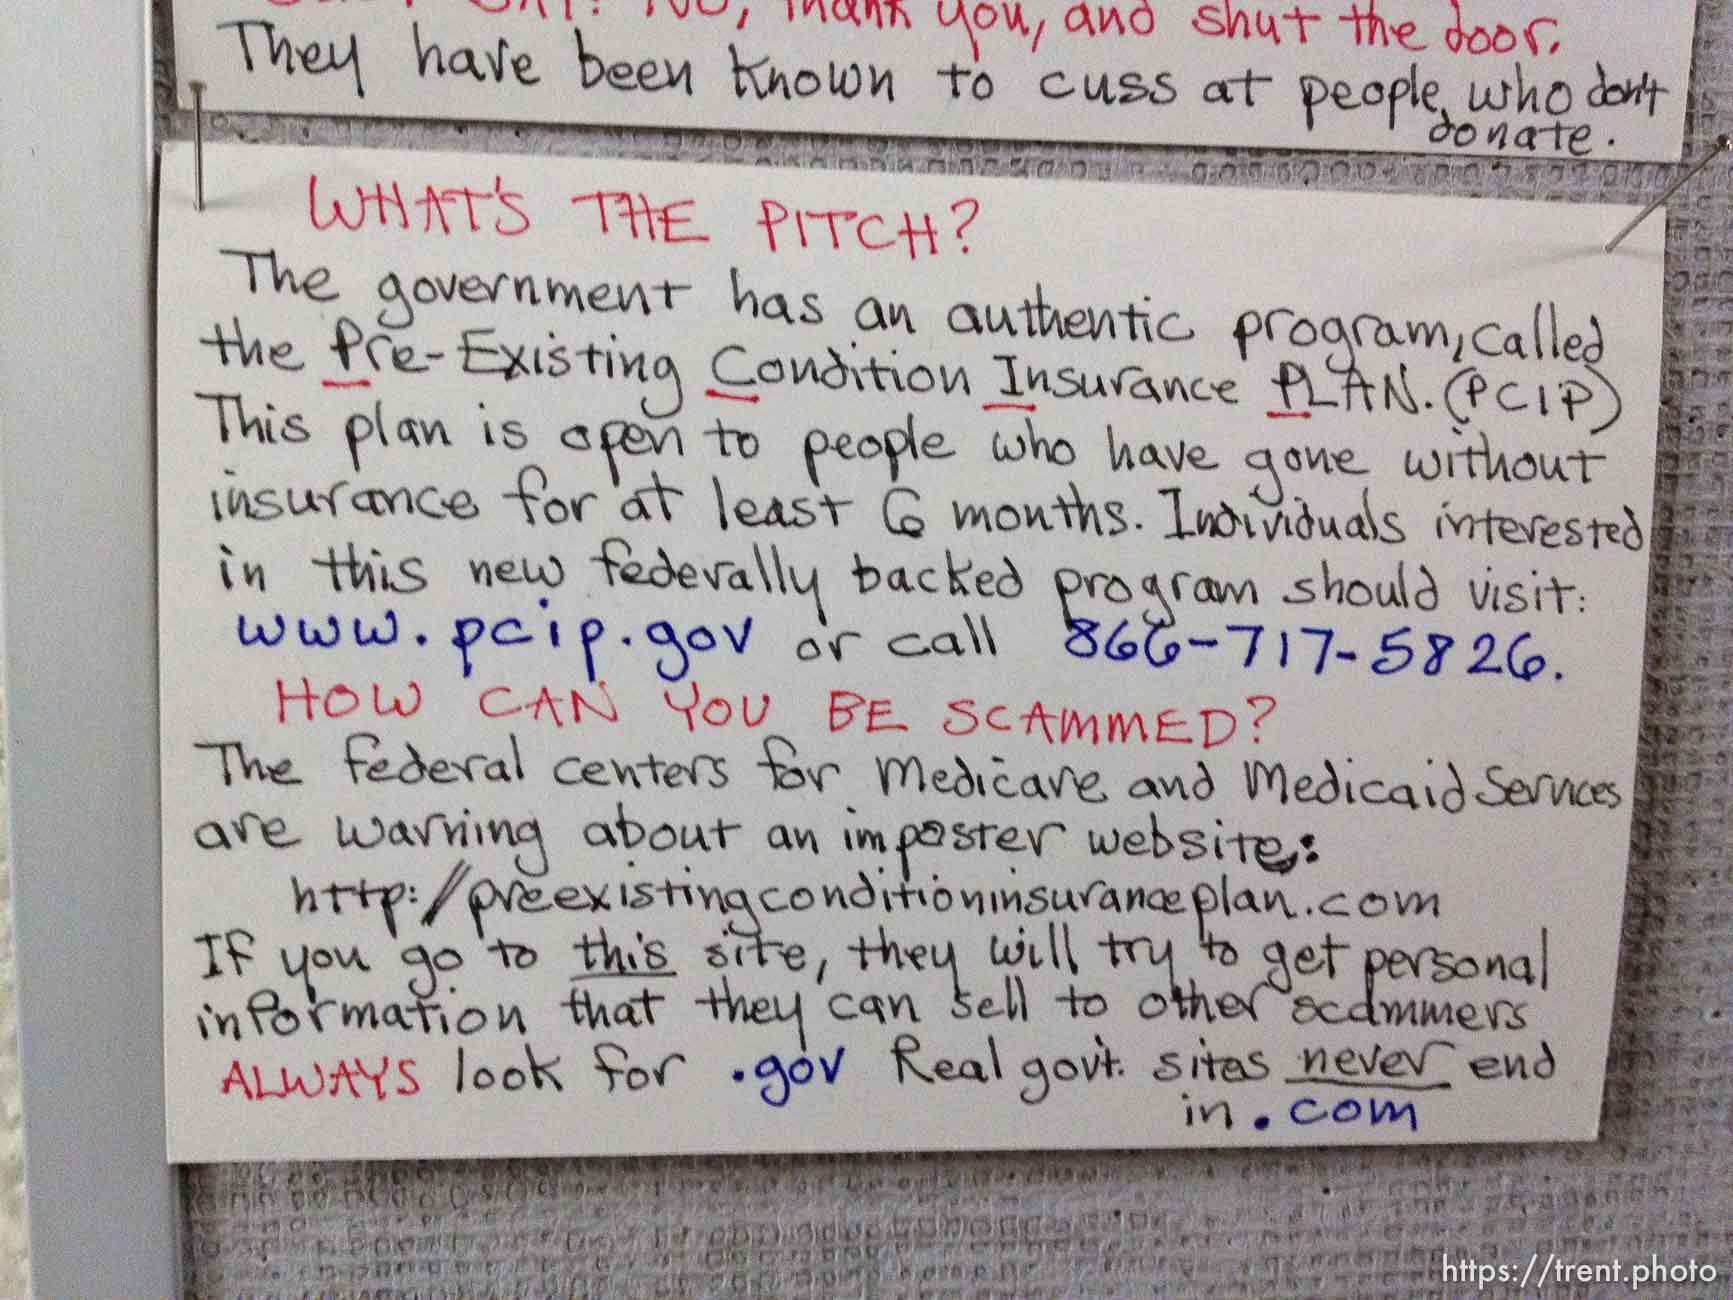 No, thank you, and shut the door.
They have been known to cuss at people who don't
donate.
WHAT'S THE PITCH?
The government has an authentic program, called
the Pre-Existing Condition Insurance PLAN. (PCIP)
This plan is open to people who have gone without
insurance for at least 6 months. Individuals interested
in this new federally backed program should visit:
www.pcip.gov or call 866-717-5826.
HOW CAN YOU BE SCAMMED?
The federal centers for Medicare and Medicaid Services
are warning about an imposter website:
http://preexistingconditioninsuranceplan.com
If you go to this site, they will try to get personal
information that they can sell to other scammers
ALWAYS look for .gov Real gov't. sites never end
in .com
https://trent.photo